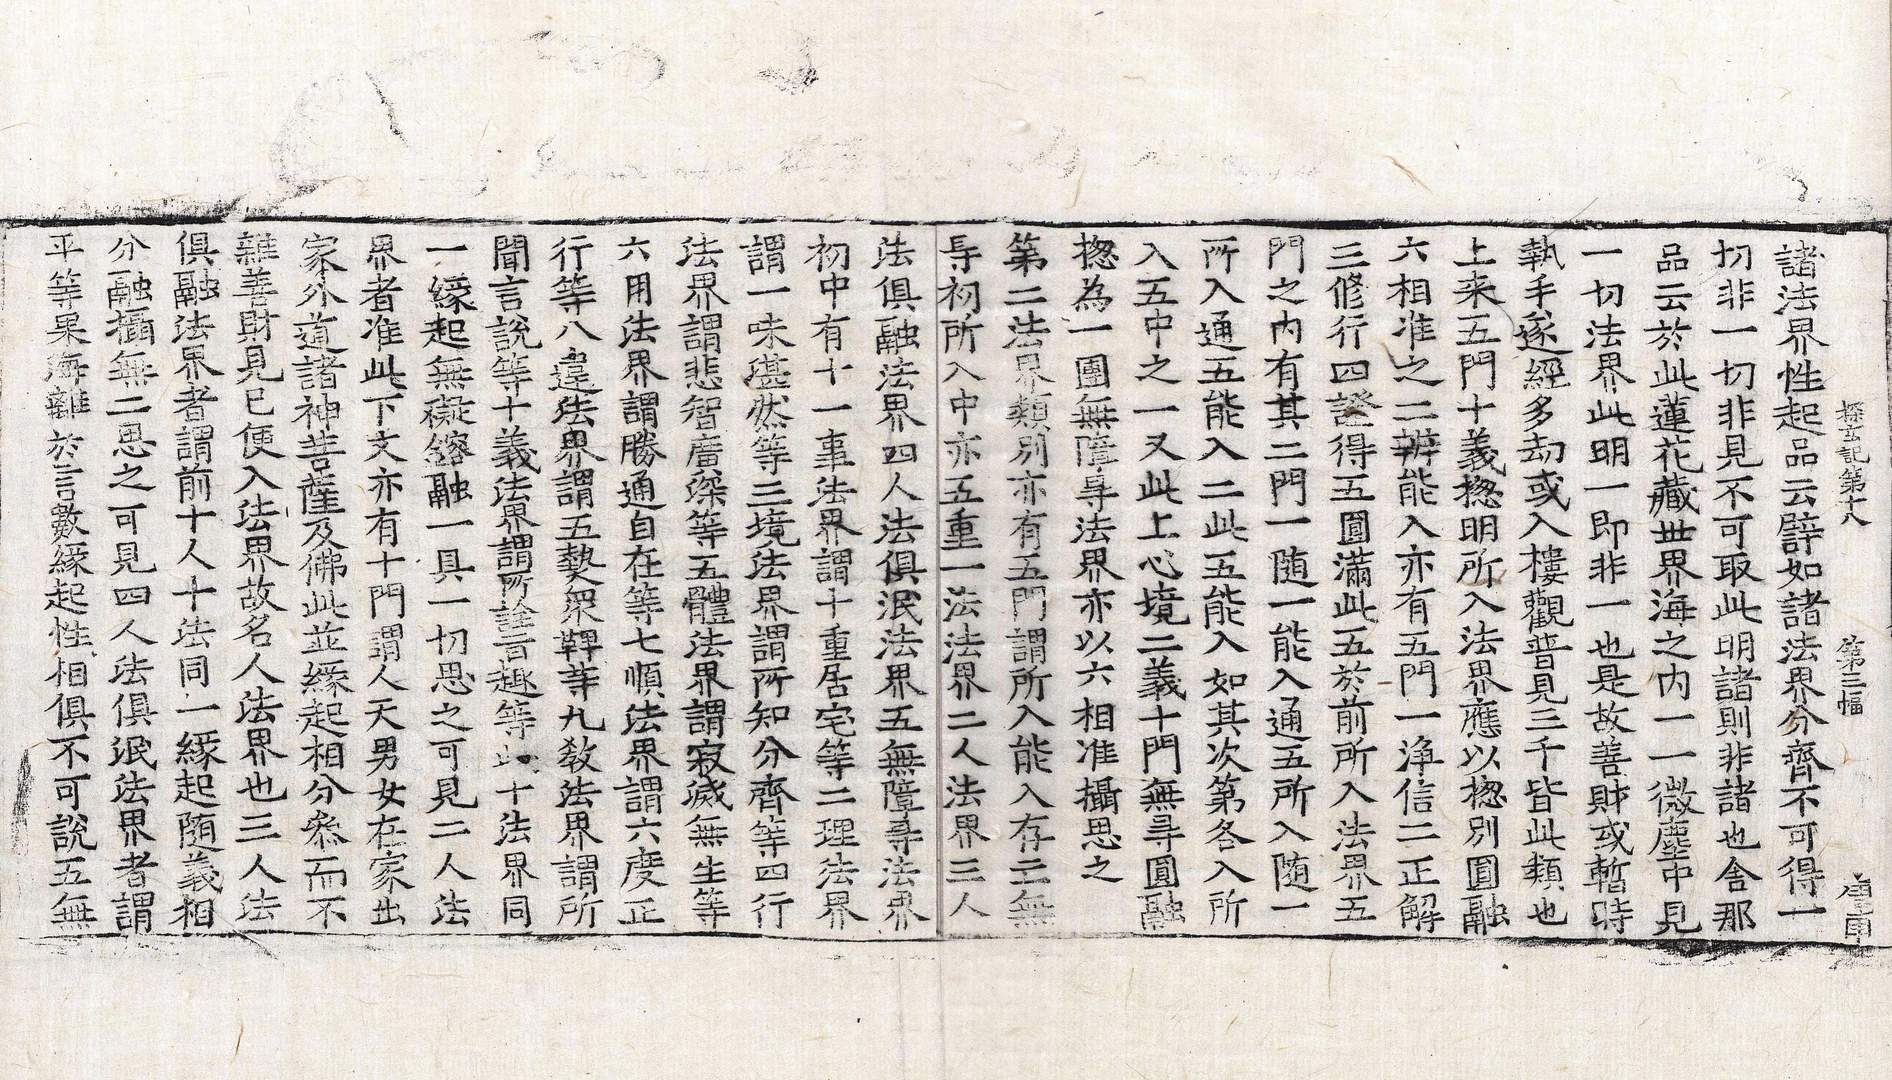 探玄記第十八 第三幅 㢘申
諸法界性起品云辟如諸法界分齊不可得一
切非一切非見不可取此明諸則非諸也舍那
品云於此蓮花藏世界海之内一一微塵中見
一切法界此明一即非一也是故善財或暫時
執手遂經多劫或入樓觀普見三千皆此類也
上来五門十義揔明所入法界應以揔別圓融
六相准之二辨能入亦有五門一淨信二正解
三修行四證得五圓滿此五於前所入法界五
門之内有其二門一随一能入通五所入随一
所入通五能入二此五能入如其次第各入所
入五中之一又此上心境二義十門無㝵圓融
揔為一團無障㝵法界亦以六相准攝思之
第二法界類別亦有五門謂所入能入存亡無
㝵初所入中亦五重一法法界二人法界三人
法俱融法界四人法俱泯法界五無障㝵法界
初中有十一事法界謂十重居宅等二理法界
謂一味湛然等三境法界謂所知分齊等四行
法界謂悲智廣深等五體法界謂寂滅無生等
六用法界謂勝通自在等七順法界謂六度正
行等八違法界謂五熱衆鞞等九教法界謂所
聞言說等十義法界謂所詮旨趣等此十法界同
一緣起無礙鎔融一具一切思之可見二人法
界者准此下文亦有十門謂人天男女在家出
家外道諸神菩薩及佛此並緣起相分叅而不
雜善財見已便入法界故名人法界也三人法
俱融法界者謂前十人十法同一緣起随義相
分融攝無二思之可見四人法俱泯法界者謂
平等果海離於言數緣起性相俱不可說五無